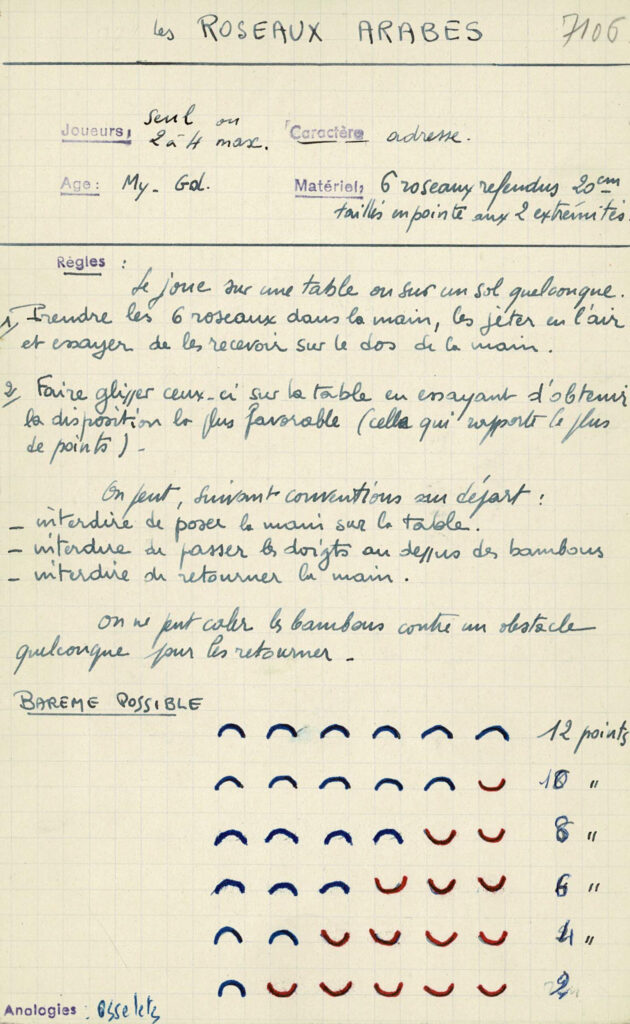 les ROSEAUX ARABES 7106
Joueurs: seul ou
2 à 4 max. Caractère adresse.
Age: My - Gd. Matériel: 6 roseaux refendus 20cm
taillés en pointe aux 2 extrémités.
Règles :
Se joue sur une table ou sur un sol quelconque.
1/ Prendre les 6 roseaux dans la main, les jeter en l'air
et essayer de les recevoir sur le dos de la main.
2/ Faire glisser ceux-ci sur la table en essayant d'obtenir
la disposition la plus favorable (celle qui rapporte le plus
de points) -
On peut, suivant conventions au départ :
- interdire de poser la main sur la table.
- interdire de passer les doigts au dessus des bambous
- interdire de retourner la main.
On ne peut caler les bambous contre un obstacle
quelconque pour les retourner -
BAREME POSSIBLE
12 points
10 "
8 "
6 "
4 "
2
Analogies : osselets